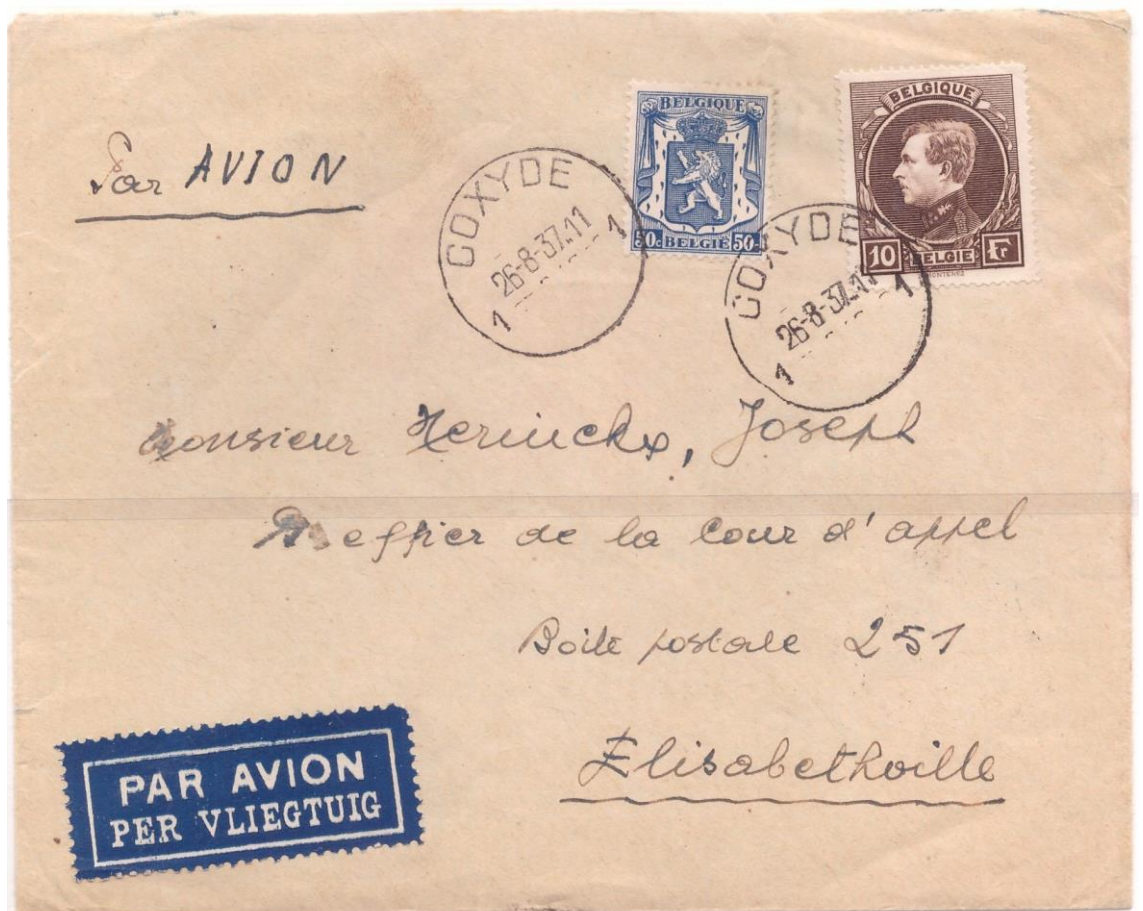 Par AVION
BELGIQUE
50c BELGIË 50c
BELGIQUE
10 BELGIË Fr
MONTENEZ
COXYDE
26-8-37.11
1 1
COXYDE
26-8-37.11
1 1
Monsieur Herinckx, Joseph
Greffier de la Cour d'appel
Boite postale 251
Elisabethville
PAR AVION
PER VLIEGTUIG